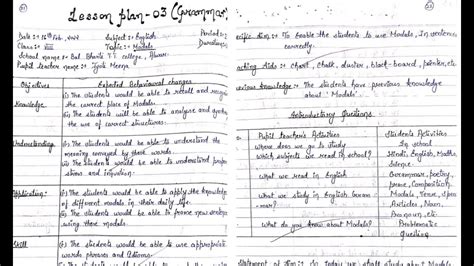 Lesson plan-03 (Grammar)
Date :- 16th Feb, Subject :- English Period :-
Class :- VIII Topic :- Modals Duration :-
School name :- Bal Bharti T.T. college, Alwar
Pupil teacher name :- Jyoti Meena
Objectives Expected Behavioural changes
Knowledge (i) The students would be able to recall and
the correct place of Modals.
(ii) The students will be able to analyse and
the use of correct structures.
Understanding (i) The students would be able to understand the
meaning conveyed by these words.
(ii) The students would be able to understand
stress and intonation.
Application (i) The students would be able to apply the knowledge
of different modals in their daily life.
(ii) The students would be able to frame new
using these Modals.
Skill (i) The students would be able to use appropriate
words, phrases and Idioms.
(ii) The students would be able to
ecific Aim :- To Enable the students to use Modals, in sentences
correctly.
aching Aids :- Chart, Chalk, duster, black-board, or sentences,
pointer, etc.
evious knowledge :- The students have previous knowledge
about 'Modals'.
Introductory Questions
Pupil teacher's Activities Students Activities
where do we go to study In school
which subjects we read in school? Hindi, English, Maths,
Science
what we read in English Grammar, poetry,
prose, Composition
what we study in English Grammar Modals, Verb, Tense
Articles, Noun
Pronoun, etc
what do you know about Modals? Problematic
Question
Statement of Aim :- Today we shall study about